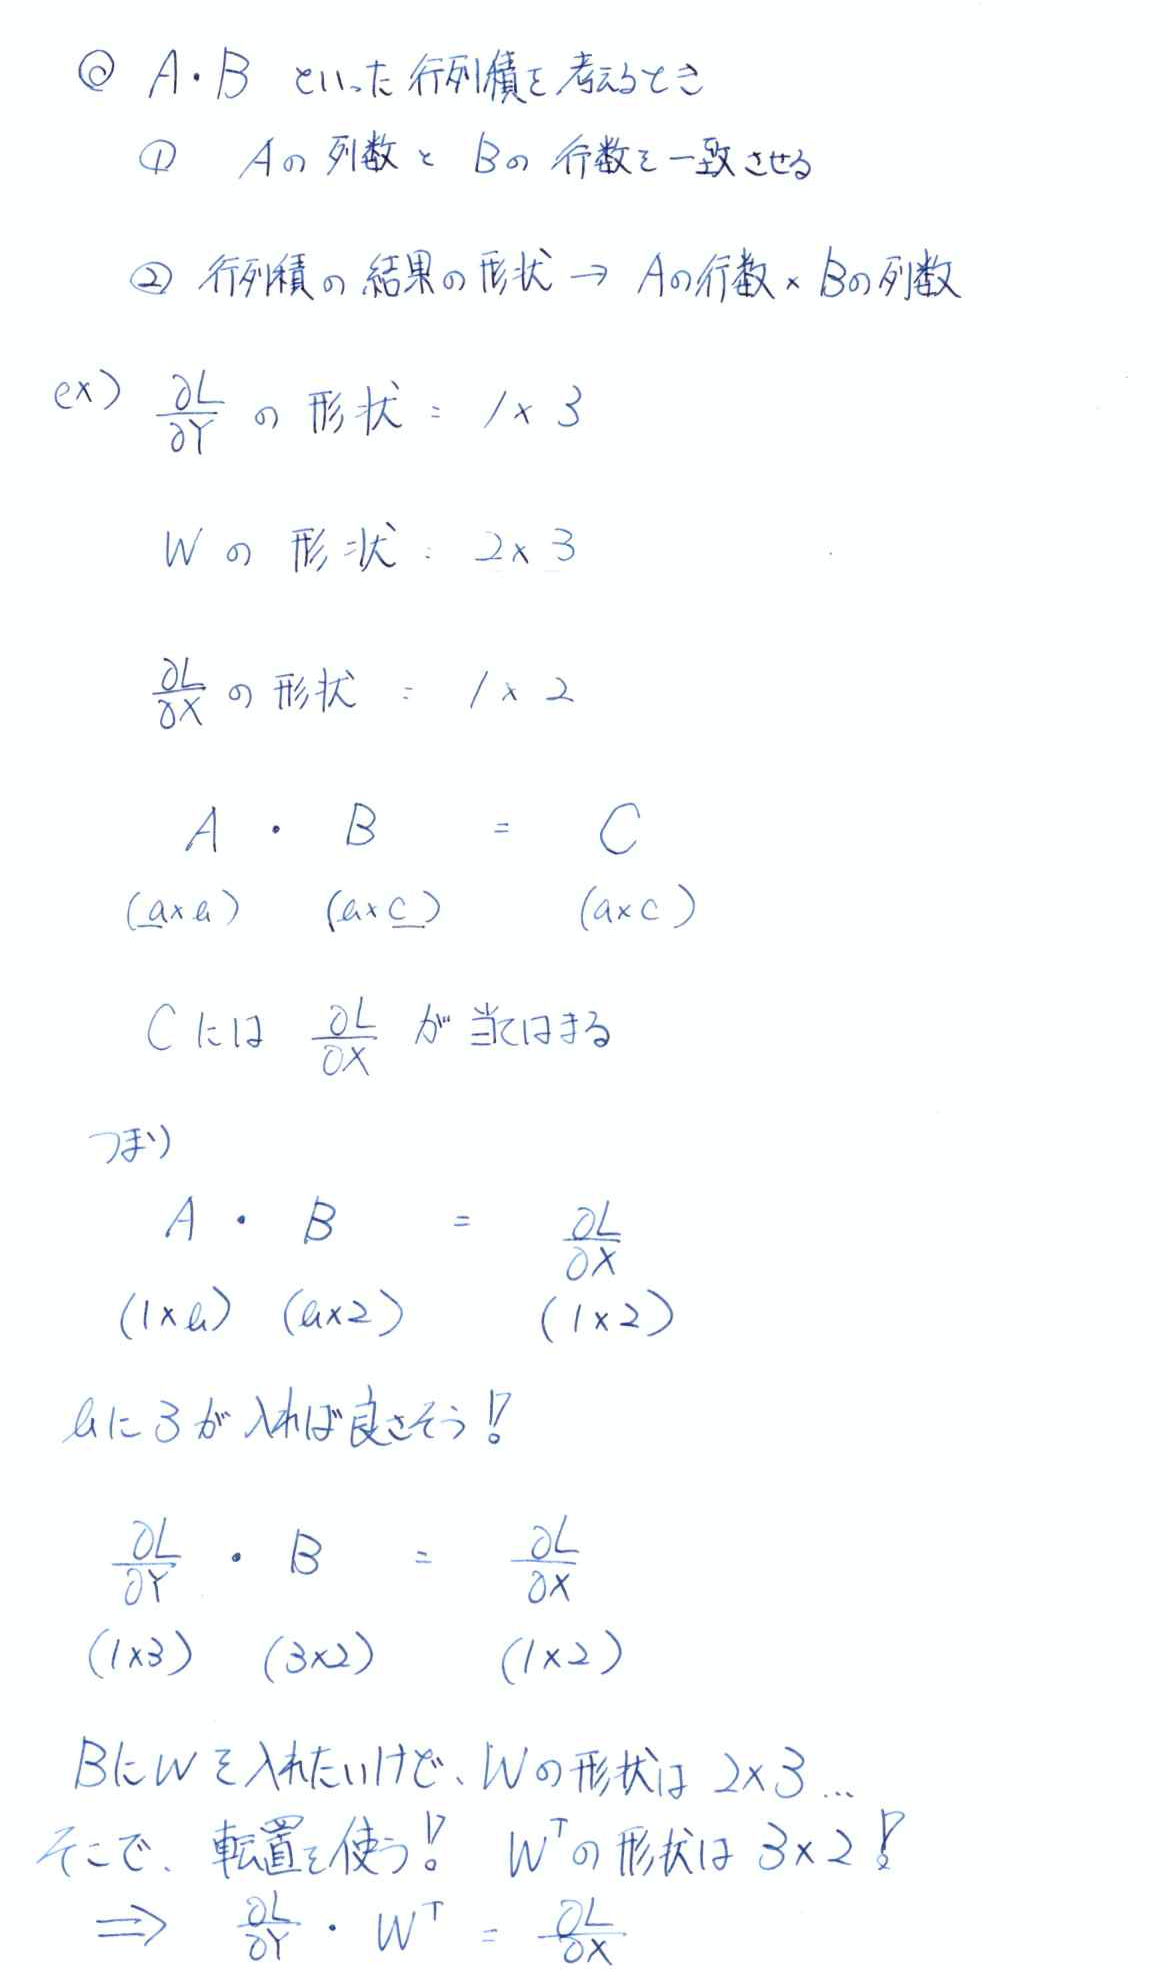 ◎ A・B といった行列積を考えるとき
① Aの列数と Bの行数を一致させる
② 行列積の結果の形状 → Aの行数 × Bの列数
ex) ∂L/∂Y の形状 : 1×3
Wの形状 : 2×3
∂L/∂X の形状 : 1×2
A ・ B = C
(a×b) (b×c) (a×c)
Cには ∂L/∂X が当てはまる
つまり
A ・ B = ∂L/∂X
(1×b) (b×2) (1×2)
bに3が入れば良さそう!?
∂L/∂Y ・ B = ∂L/∂X
(1×3) (3×2) (1×2)
BにWを入れたいけど、Wの形状は 2×3…
そこで、転置を使う!? Wᵀの形状は 3×2!?
⇒ ∂L/∂Y ・ Wᵀ = ∂L/∂X